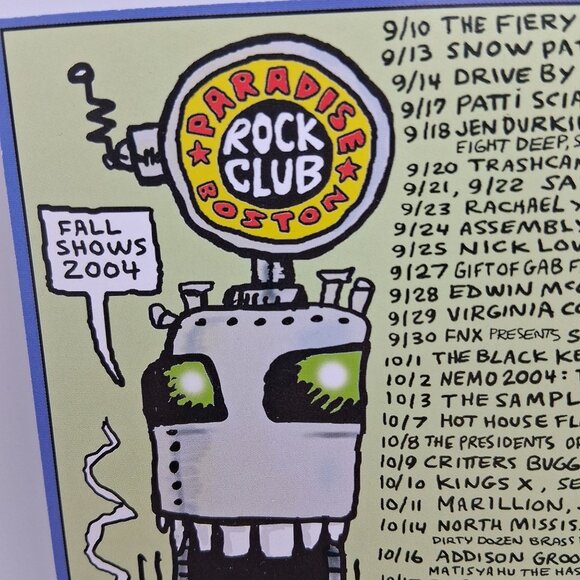 PARADISE
ROCK
CLUB
BOSTON
FALL
SHOWS
2004
9/10 THE FIERY
9/13 SNOW PA
9/14 DRIVE BY
9/17 PATTI SCIA
9/18 JEN DURKI
EIGHT DEEP, S
9/20 TRASHCA
9/21, 9/22 SA
9/23 RACHAEL Y
9/24 ASSEMBLY
9/25 NICK LOW
9/27 GIFT OF GAB F
9/28 EDWIN MCC
9/29 VIRGINIA CO
9/30 FNX PRESENTS S
10/1 THE BLACK KE
10/2 NEMO 2004: T
10/3 THE SAMPL
10/7 HOT HOUSE FL
10/8 THE PRESIDENTS OF
10/9 CRITTERS BUGG
10/10 KINGS X, SE
10/11 MARILLION,
10/14 NORTH MISSIS
DIRTY DOZEN BRASS
10/16 ADDISON GROO
MATISYAHU THE HAS